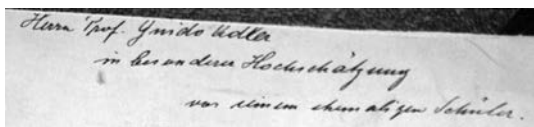 Herrn Prof. Guido Adler
in besonderer Hochschätzung
von seinem ehemaligen Schüler.